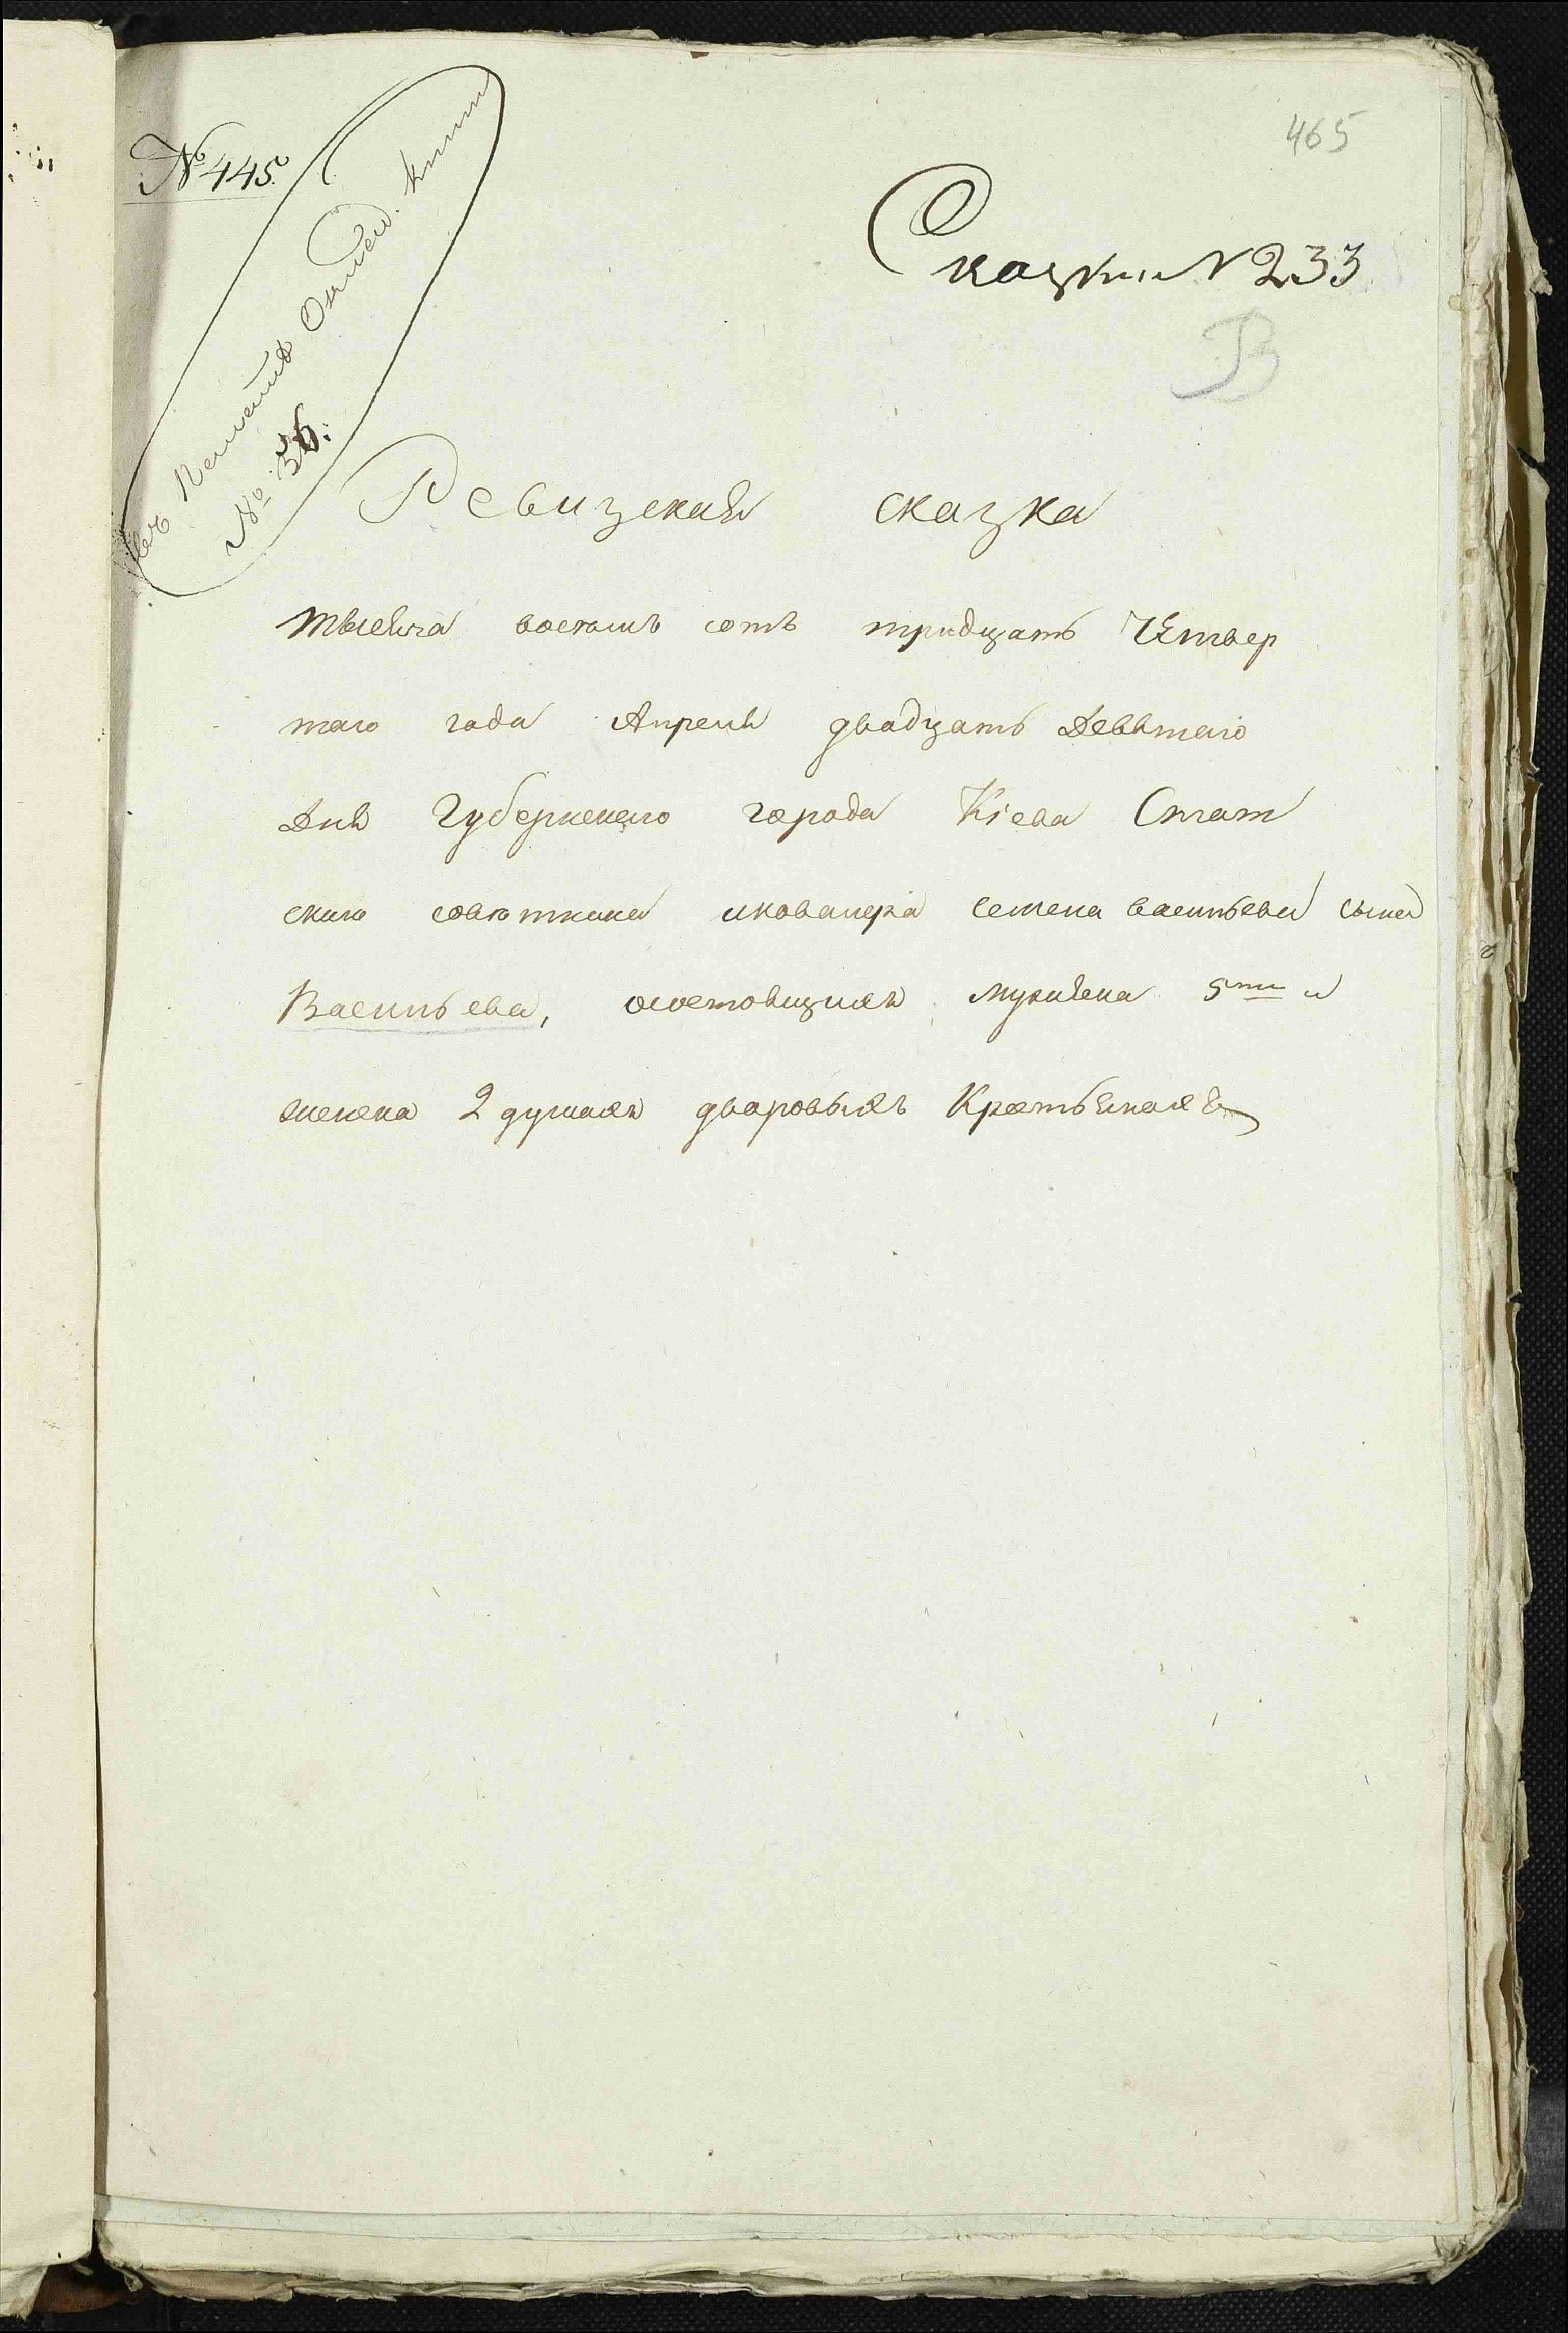 465
№ 445.
Сказки № 233
В
№ 36.
Ревизская сказка
тысяча восемь сотъ тридцать Четвер
таго года Апреля двадцать Девятаго
Дня Губернскаго города Кіева Стат
скаго советника икавалера семена васильева сына
Васильева, осостовщихъ мужеска 5ти и
женска 2 душахъ дваровыхъ Крестьянахъ